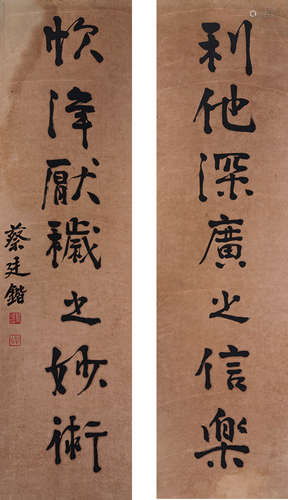 利他深廣之信樂
欣淨厭穢之妙術
蔡廷鍇